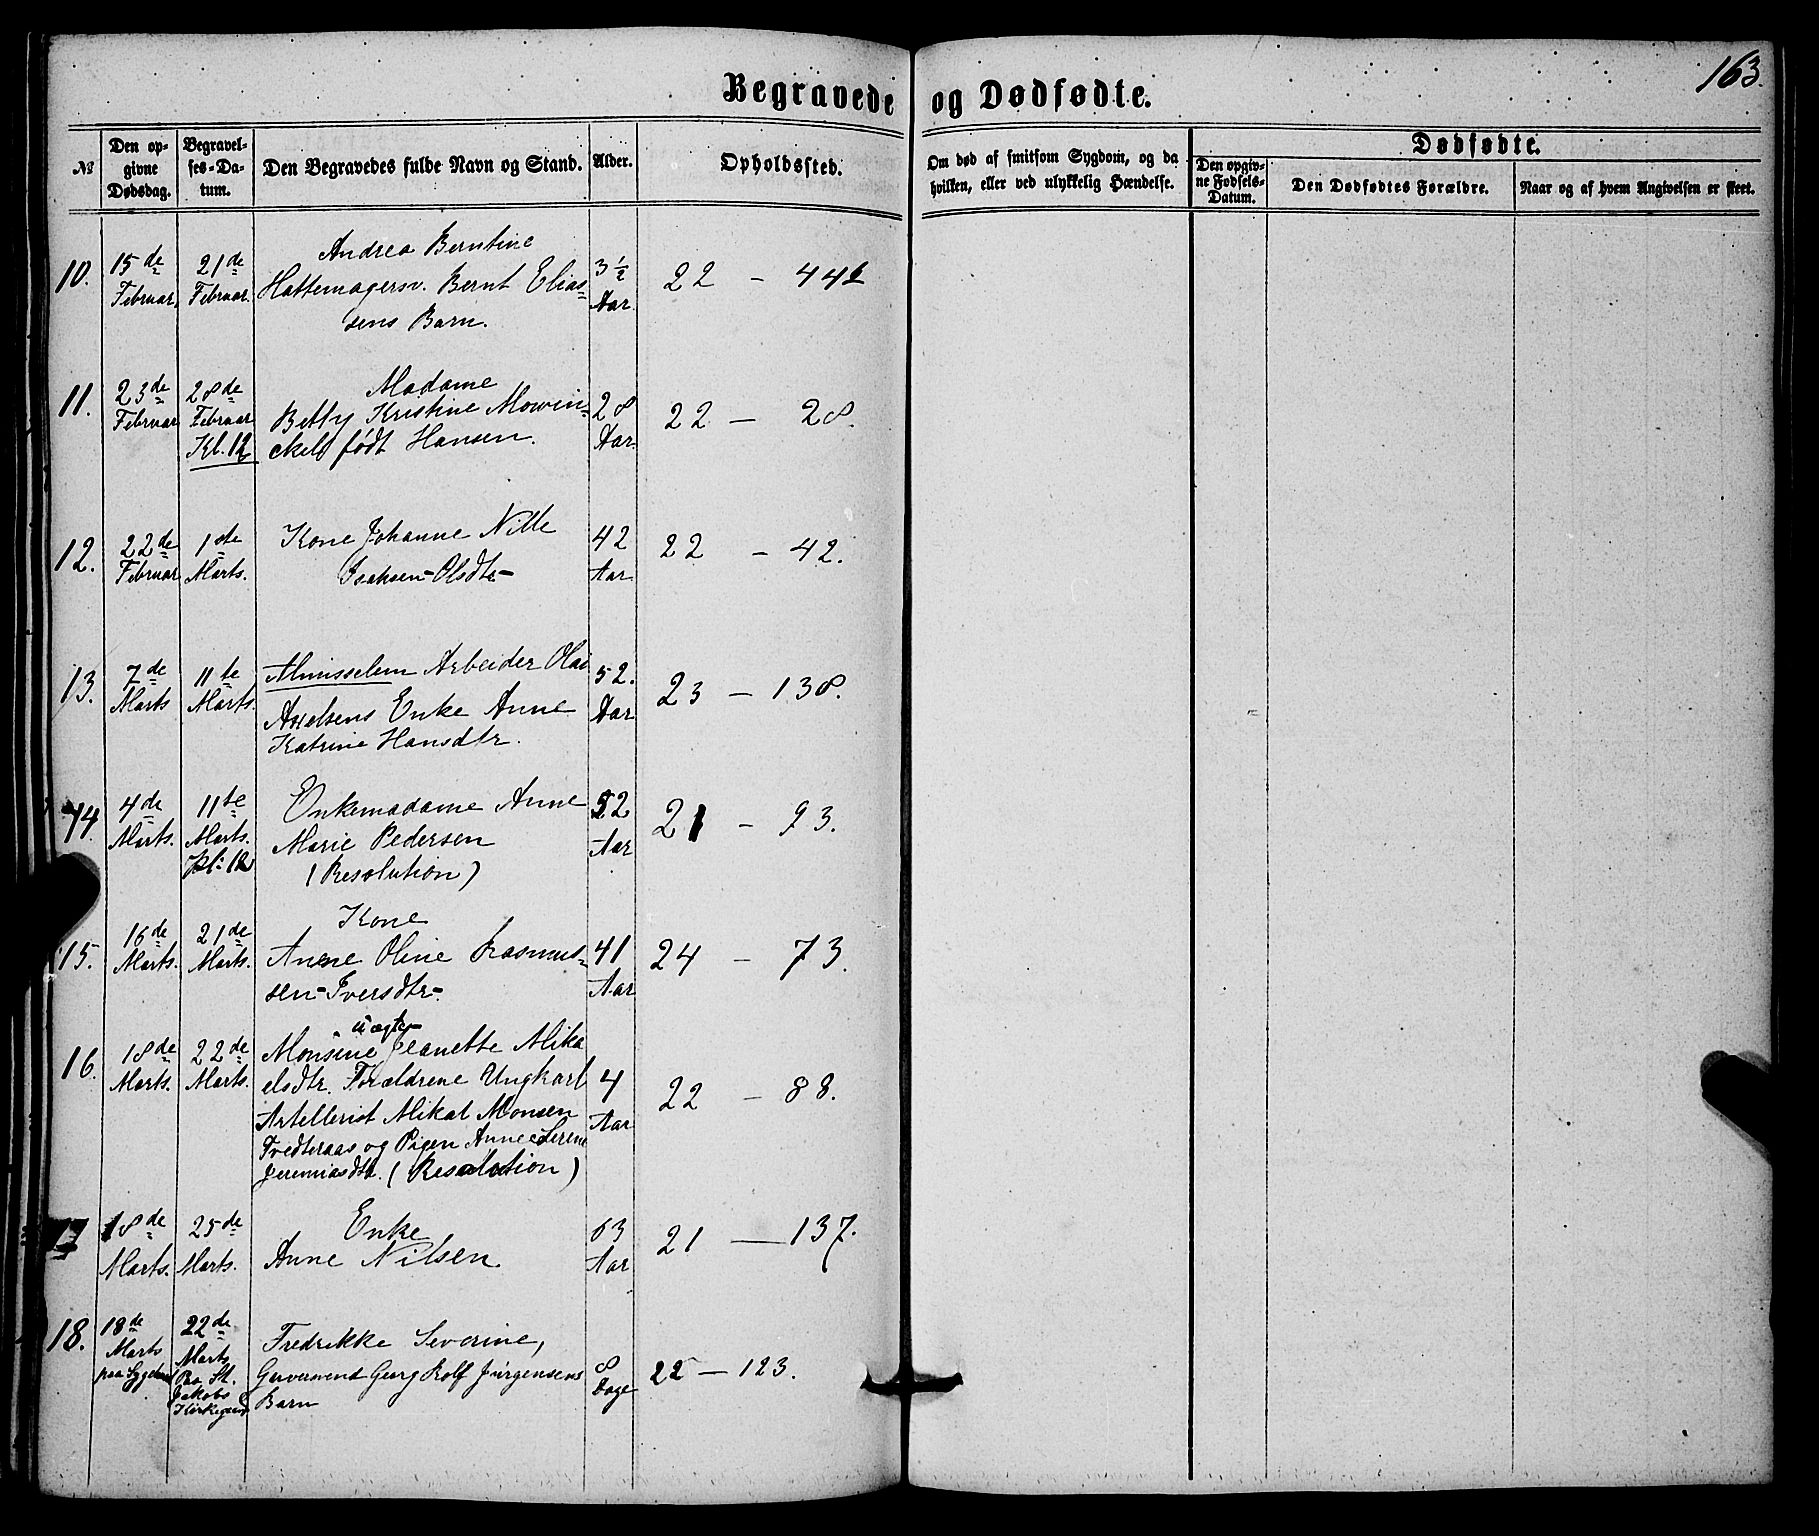 163.
Begravede og Dødfødte.
№
Den opgivne Dødsdag.
Begravelses-Datum.
Den Begravedes fulde Navn og Stand.
Alder.
Opholdssted.
Om død af smitsom Sygdom, og da hvilken, eller ved ulykkelig Hændelse.
Dødfødte.
Den opgivne Fødsels-Datum.
Den Dødfødtes Forældre.
Naar og af hvem Angivelsen er skeet.
10. 15de Februar, 21de Februar.
Andrea Berntine
Hattemagersv. Bernt Elias-
sens Barn.
3 ½ Aar
22 — 44
11. 23de Februar 28de Februar Kl. 12
Madame
Betty Kristine Mowin-
ckel født Hansen.
28 Aar
22 — 28.
12. 22de Februar 1ste Marts.
Kone Johanne Nille
Isaksen - Olsdtr -
42 Aar
22 — 42.
13. 7de Marts 11te Marts.
Almisselem Arbeider Olai
Axelsens Enke Anne
Katrine Hansdtr.
52. Aar
23 — 138.
14. 4de Marts. 11te Marts. Kl. 12
Enkemadame Anne
Marie Pedersen
(Resolution)
52 Aar
21 — 93.
15. 16de Marts. 21de Marts.
Kone
Anne Oline Rasmus-
sen - Iversdtr -
41 Aar
24 — 73.
16. 18de Marts. 22de Marts.
uægte
Monsine Jeanette Mika
elsdtr. Forældrene Ungkarl
Artellerist Mikal Monsen
Tredteraas og Pigen Anne Serene
Jeremiasdtr. (Resolution)
4 Aar
22 — 88.
17 18de Marts. 25de Marts.
Enke
Anne Nilsen.
63 Aar
21 — 137.
18. 18de Marts paa 22de Marts Paa St. Jakobs Kirkegaard
Fredrikke Severine,
Gevormend Georg Rolf Jürgensens
Barn
8 Dage
22 — 123.